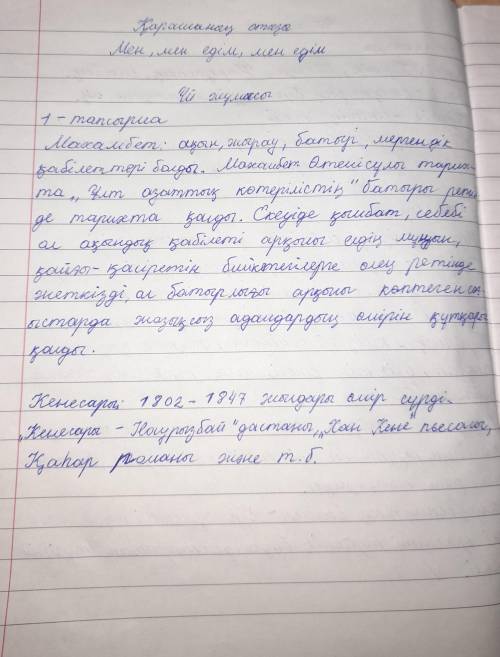 Қарашаның отызы
Мен, мен едім, мен едім
Үй жұмысы
1 - тапсырма
Махамбет: ақын, жырау, батыр, мергендік
қабілеттері болды. Махамбет Өтемісұлы тарих-
та „Ұлт азаттық көтерілістің" батыры ретін
де тарихта қалды. Екеуіде қымбат, себебі
ол ақындық қабілеті арқылы елдің мұңын,
қайғы-қасіретін биіктегілерге өлең ретінде
жеткізді, ал батырлығы арқылы көптеген со
ғыстарда жазықсыз адамдардың өмірін құтқарып
қалды.
Кенесары: 1802 - 1847 жылдары өмір сүрді.
„Кенесары - Наурызбай" дастаны, „Хан Кене" пьесасы,
Қаһар романы және т.б.